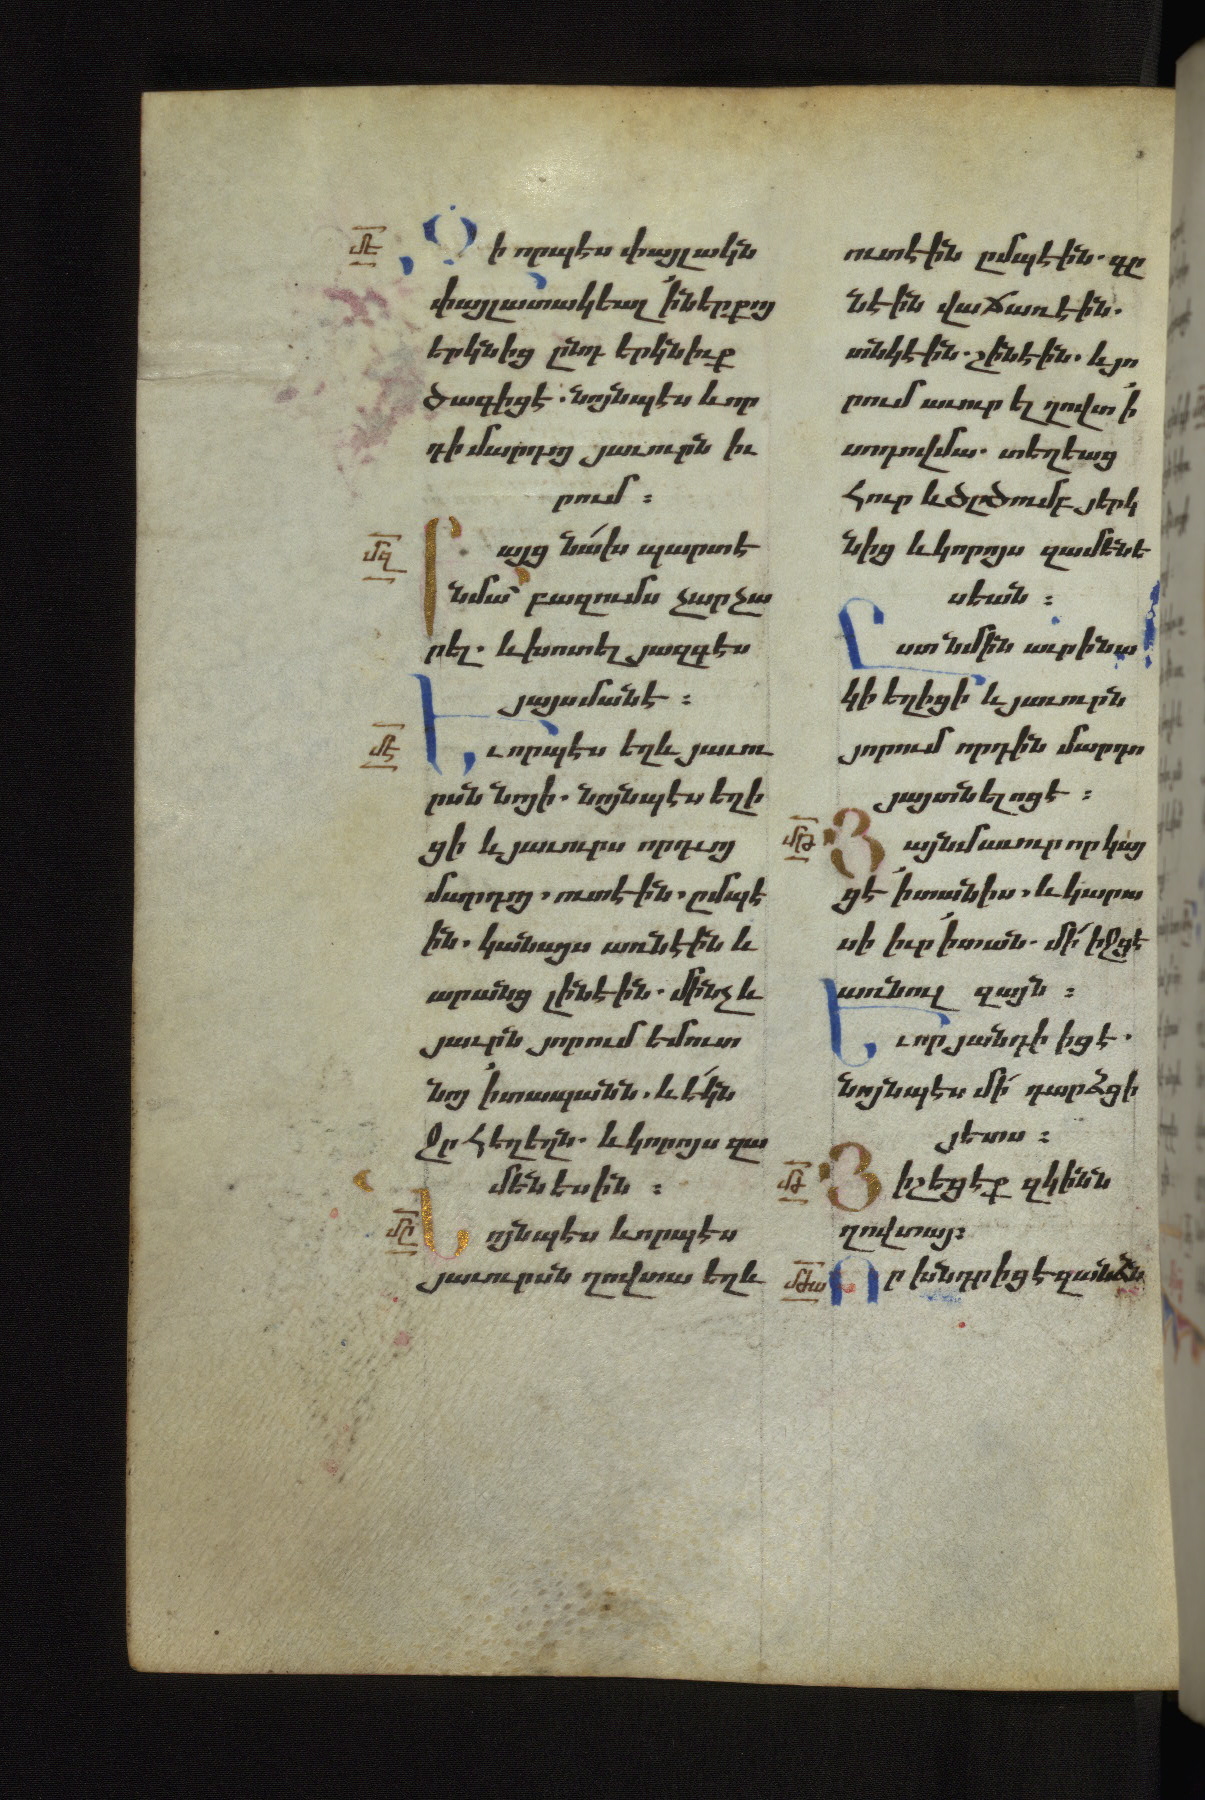 մե
Զի որպէս փայլակն
փայլատակեալ ՚ի ներքոյ
երկնից ընդ երկնիւք
ծագիցէ . նոյնպէս և որ
դի մարդոյ յաւուրն իւ
րում :
մզ
Բայց նախ պարտ է
նմա բազումս չարչա
րել . և խոտել յազգէս
յայսմանէ :
մէ
Եւ որպէս եղև յաւու
րսն նոյի . նոյնպէս եղի
ցի և յաւուրս որդւոյ
մարդոյ . ուտէին . ըմպէ
ին . կանայս առնէին և
արանց լինէին . մինչև
յաւրն յորում եմուտ
նոյ ՚ի տապանն . և էկն
ջր հեղեղն . և կորոյս զա
մենեսին :
մը
Նոյնպէս և որպէս
յաւուրսն ղովտա եղև
ուտէին ըմպէին . գը
նէին վաճառէին .
տնկէին . շինէին . և յո
րում աւուր ել ղովտ ՚ի
սոդովմա . տեղեաց
հուր և ծըծումբ յերկ
նից և կորոյս զամենե
սեան :
Ըստ նմին աւրինա
կի եղիցի և յաւուրն
յորում որդին մարդո
յայտնելոցէ :
մթ
Յայնմ աւուր որ կայ
ցէ ՚ի տանիս . և կարա
սի իւր ՚ի տան . մի իջցէ
առնուլ զայն :
Եւ որ յանդի իցէ .
նոյնպէս մի դարձցի
յետս :
մժ
Յիշեցէք զկինն
ղովտայ :
մժա
Որ խնդրիցէ զանձն